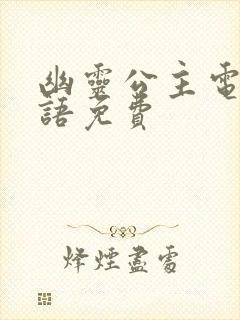 幽靈公主電
語免費
烽煙盡處